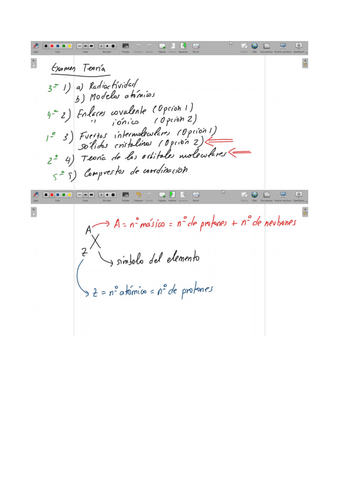 Examen Teoría
3º 1) a) Radioactividad
b) Modelos atómicos
4º 2) Enlaces covalente (Opción 1)
" iónico (Opción 2)
1º 3) Fuerzas intermoleculares (Opción 1)
sólidos cristalinos (Opción 2)
2º 4) Teoría de los orbitales moleculares
5º 5) Compuestos de coordinación
A → A = nº másico = nº de protones + nº de neutrones
X
Z
símbolo del elemento
Z = nº atómico = nº de protones